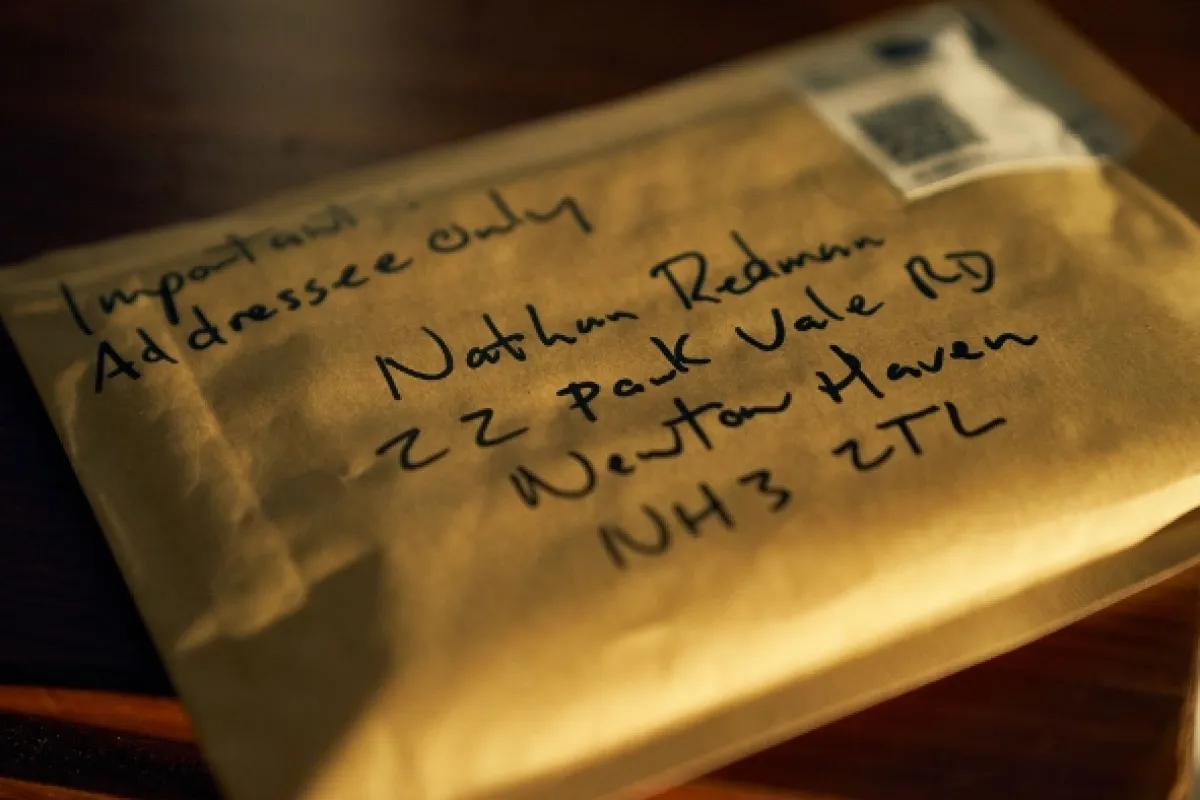 Important
Addressee Only
Nathan Redman
22 Park Vale RD
Newton Haven
NH3 2TL